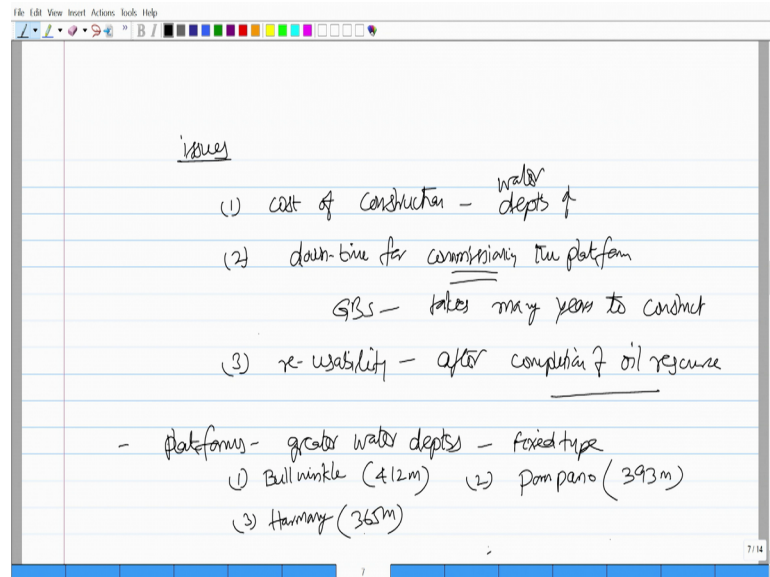 File Edit View Insert Actions Tools Help
B I
issues
(1) cost of construction - water depths ↑
(2) down-time for commissioning the platform
GBS - takes many years to construct
(3) re-usability - after completion of oil resource
- platforms - greater water depths - fixed type
(1) Bullwinkle (412m) (2) Pompano (393m)
(3) Harmany (365m)
7/14
7